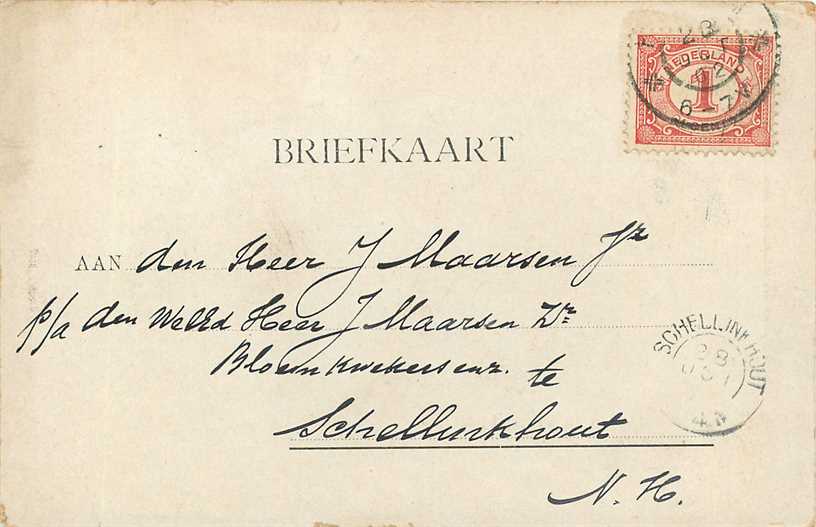 NEDERLAND
1
CENT
6-7V
BRIEFKAART
AAN den Heer J Maarsen Jz
p/a den WelEd Heer J Maarsen Dz
Bloemkweekersenz. te
Schellinkhout
N. H.
SCHELLINKHOUT
28
4N